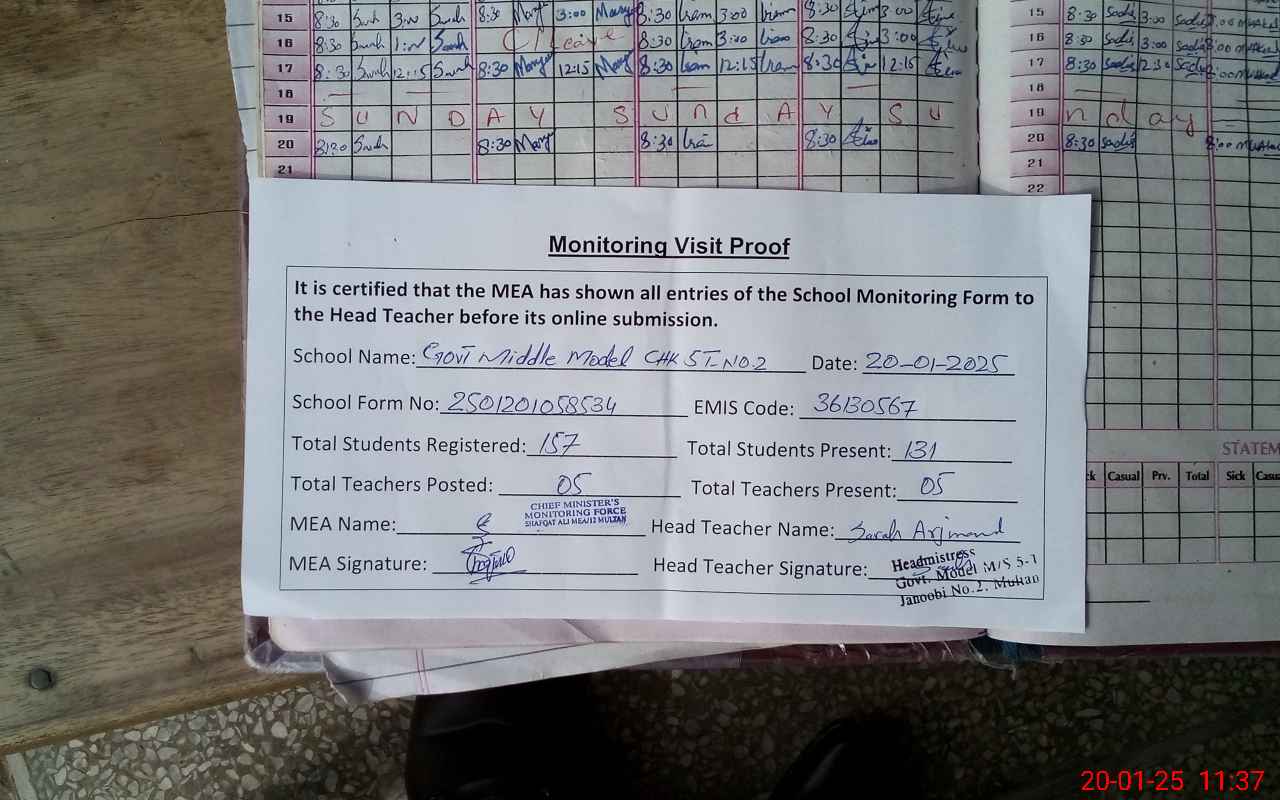 15 8:30 Sarah 3:00 Sarah 8:30 Mary 3:00 Mary 8:30 Iram 3:00 Iram 8:30 3:00 15 8:30 Sadia 3:00 Sadia
16 8:30 Sarah Sarah C/leave 8:30 Iram 3:00 Iram 8:30 3:00 16 8:30 Sadia 3:00 Sadia
17 8:30 Sarah 12:15 Sarah 8:30 Mary 12:15 Mary 8:30 Iram 12:15 Iram 8:30 12:15 17 8:30 Sadia 12:30 Sadia
18 18
19 S U N D A Y S U n d A Y S U 19 n d a y
20 8:30 Sarah 8:30 Mary 8:30 8:30 20 8:30 Sadia
21 21
22
Monitoring Visit Proof
It is certified that the MEA has shown all entries of the School Monitoring Form to
the Head Teacher before its online submission.
School Name: Govt Middle Model CHK 5T-NO.2 Date: 20-01-2025
School Form No: 2501201058534 EMIS Code: 36130567
Total Students Registered: 157 Total Students Present: 131
Total Teachers Posted: 05 Total Teachers Present: 05
CHIEF MINISTER'S
MONITORING FORCE
SHAFQAT ALI MEA/12 MULTAN
MEA Name: Head Teacher Name: Sarah Arjmand
MEA Signature: Head Teacher Signature:
Headmistress
Govt. Model M/S 5-T
Janoobi No.2. Multan
STATEM
Casual Prv. Total Sick Casu
20-01-25 11:37